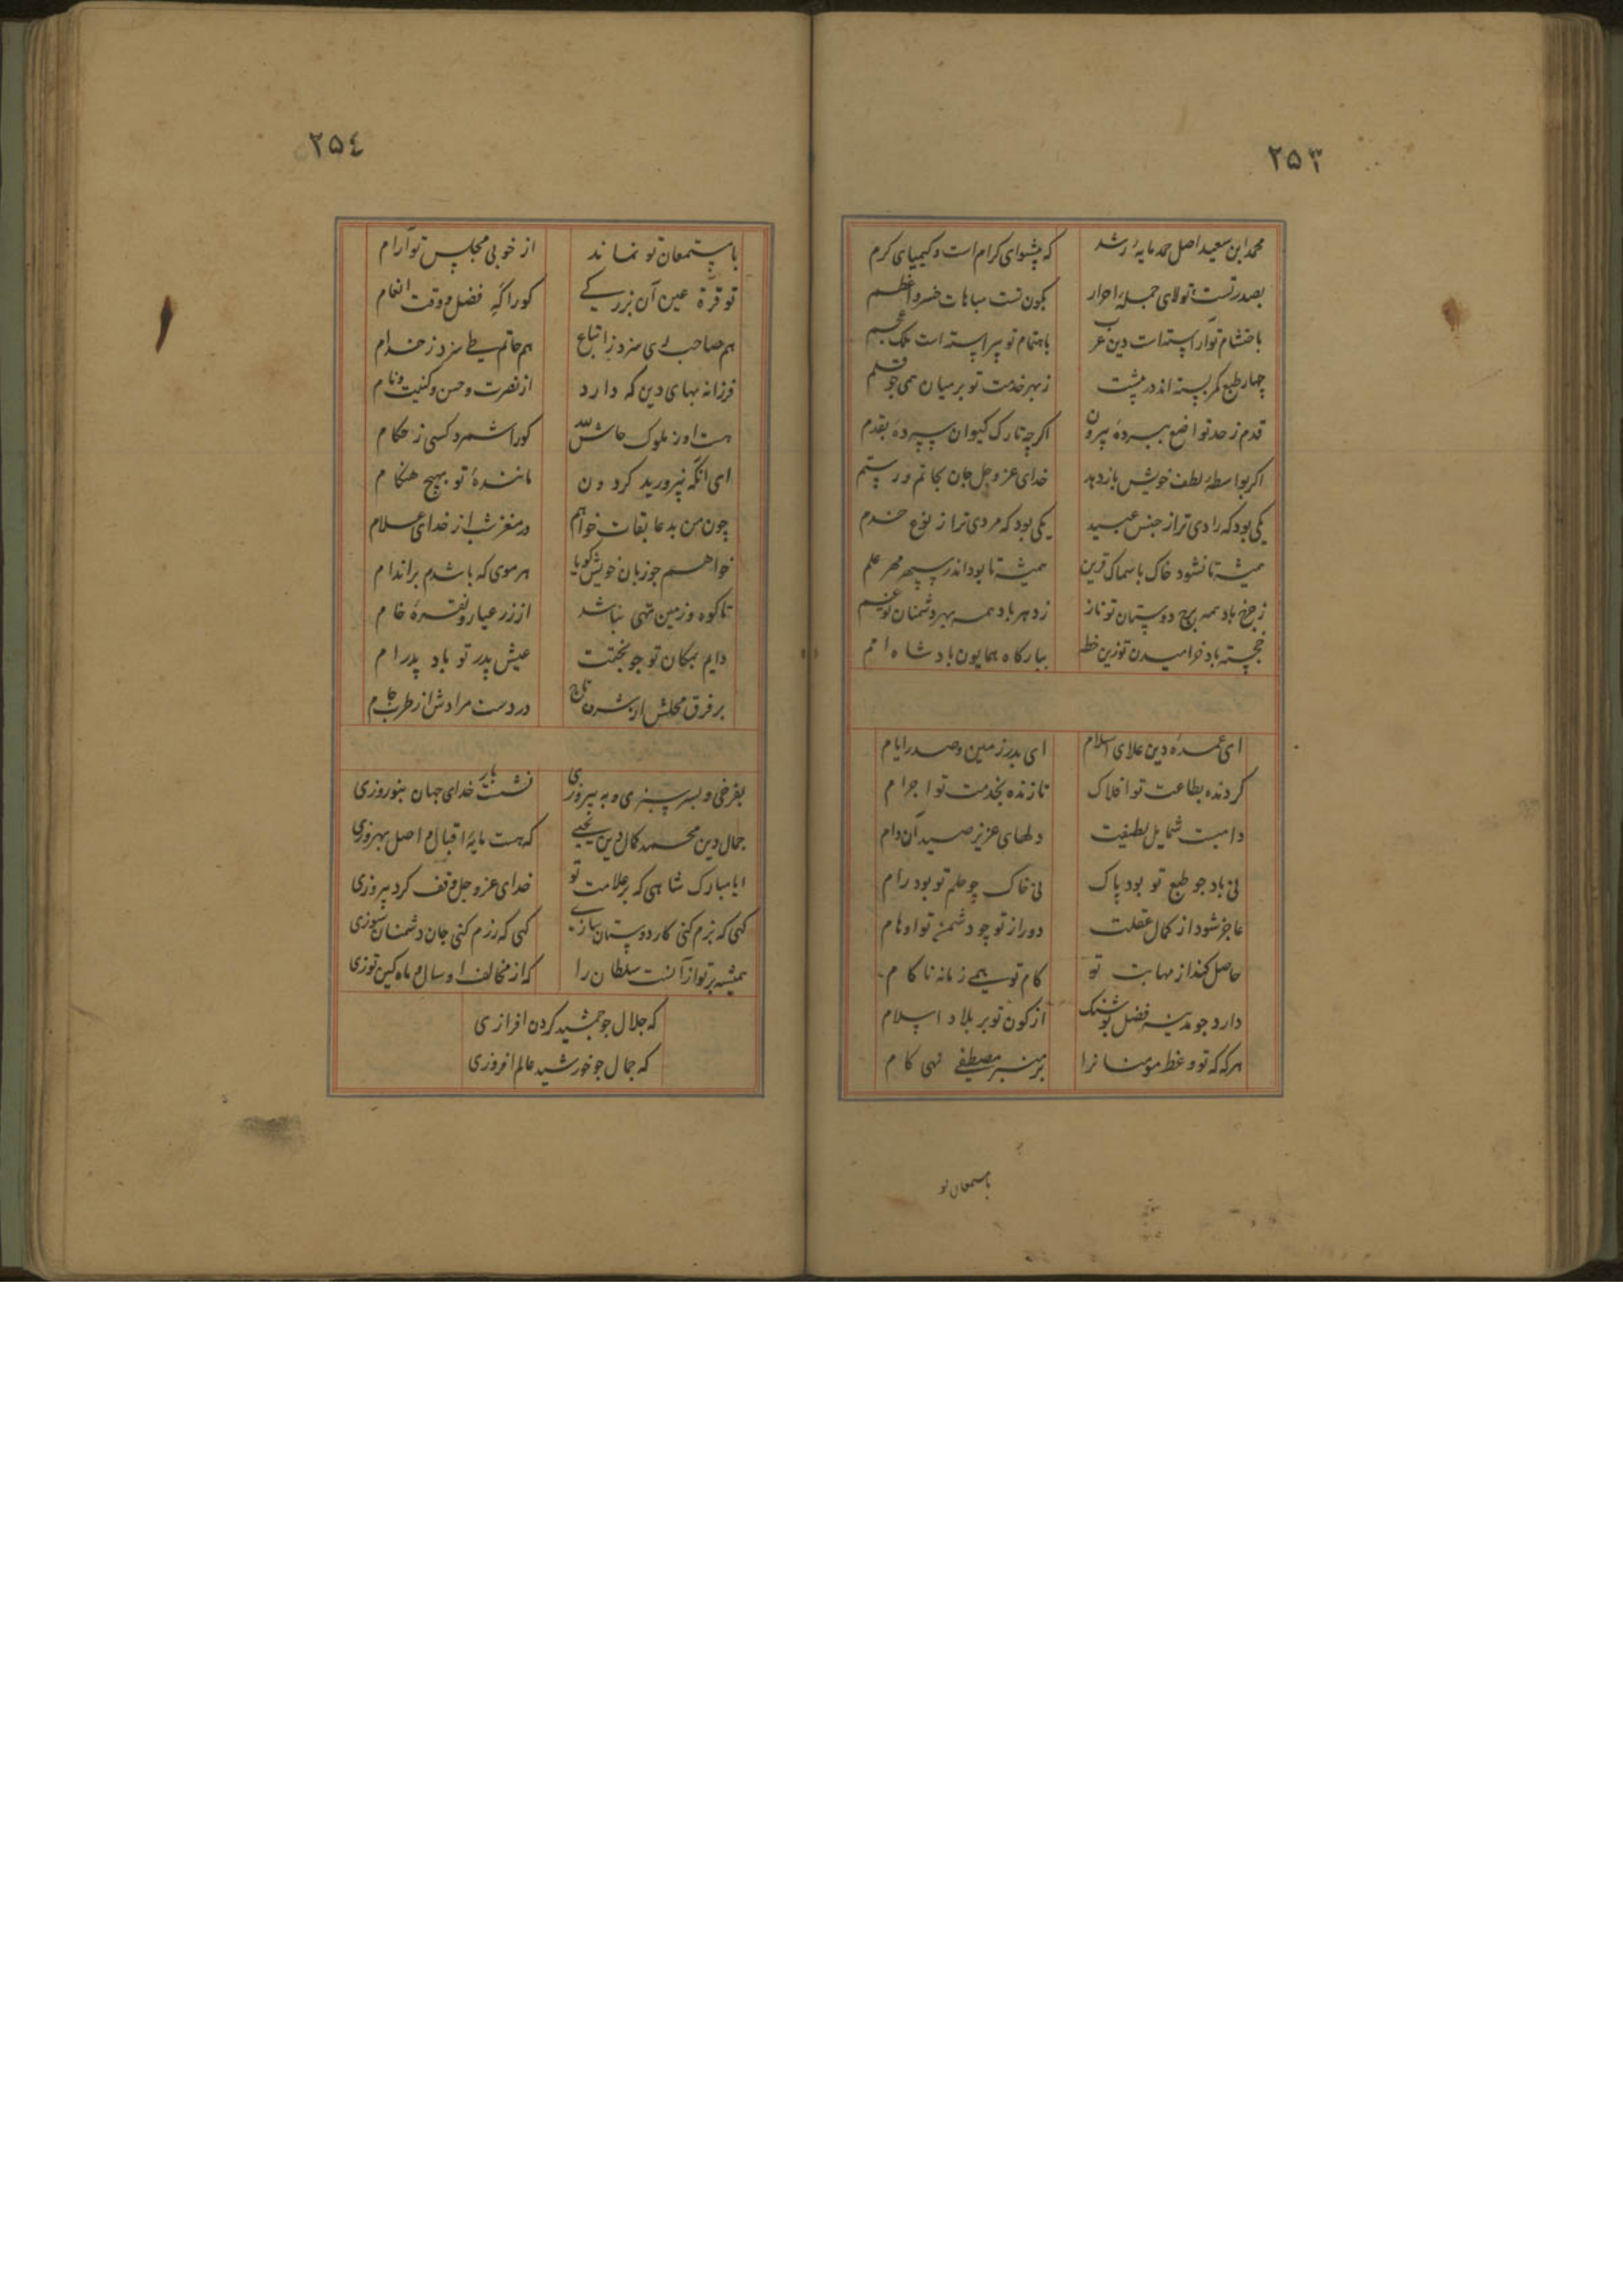 ۲۵۳
محمد ابن سعید اصل حمد مایهٔ رشد که پیشوای کرام است و کیمیای کرم
بصدر تست تولای جملهٔ احرار بکون تست مباهات خسرو اعظم
باحتشام تو آراسته است دین عرب باهتمام تو پیراسته است ملک عجم
چهار طبع کمر بسته اند در پیشت ز بهر خدمت تو بر میان همی جو قلم
قدم ز حد تواضع نبردهٔ بیرون اکرچه تارک کیوان سپردهٔ بقدم
اکر بواسطهٔ لطف خویش باز دهد خدای عز و جل جان بحاتم و رستم
یکی بود که رادی ترا ز جنس عبید یکی بود که مردی ترا ز نوع خدم
همیشه تا نشود خاک با سماک قرین همیشه تا بود اندر سپهر مهر علم
ز چرخ باد همه بهر دوستان تو ناز ز دهر باد همه بهر دشمنان تو غم
خجسته باد خرامیدن تو زین خطه ببارکاه همایون بادشاه امم
ای عمدهٔ دین علای اسلام ای بدر زمین و صدر ایام
کردنده بطاعت تو افلاک تازنده بخدمت تو اجرام
دامیست شمایل لطیفت دلهای عزیز صید آن دام
نی باد جو طبع تو بود پاک نی خاک چو حلم تو بود رام
عاجز شود از کمال عقلت دور از تو چو دشمن تو اوهام
حاصل کند از مهابت تو کام تو همی زمانه ناکام
دارد جو مدینه فضل بوشنک از کون تو بر بلاد اسلام
هرکه که تو وعظ مومنانرا بر منبر مصطفی نهی کام
بامستمعان تو
۲۵٤
با مستمعان تو نماند از خوبی مجلس تو آرام
تو قرة عین آن بزرکی کورا که فضل و وقت انعام
هم صاحب ری سزد ز اتباع هم حاتم طی سزد ز خدام
فرزانه بهای دین که دارد از نصرت و حسن و کنیت و نام
هست او ز ملوک حاش لله کورا شمرد کسی ز حکام
ای آنکه نپرورید کردون مانندهٔ تو بهیچ هنکام
چون من بدعا بقات خواهم در مغز شب از خدای علام
خواهم جو زبان خویش کویا هر موی که باشدم بر اندام
تا کوه و زمین تهی نباشد از زر عیار و نقرهٔ خام
دایم بمکان تو جو بختت عیش پدر تو باد پدرام
بر فرق محلش از شرف تاج در دست مرادش از طرب جام
بفرخی و بسرسبزی و به پیروزی نشست بار خدای جهان بنوروزی
جمال دین محمد کمال دین یحیی که هست مایهٔ اقبال و اصل بهروزی
ایا مبارک شاهی که بر علامت تو خدای عز و جل وقف کرد پیروزی
کهی که بزم کنی کار دوستان سازی کهی که رزم کنی جان دشمنان سوزی
همیشه بر تو از آنست سلطان را که از مخالف او سال و ماه کین توزی
که جلال جو جمشید کردن افرازی
که جمال جو خورشید عالم افروزی